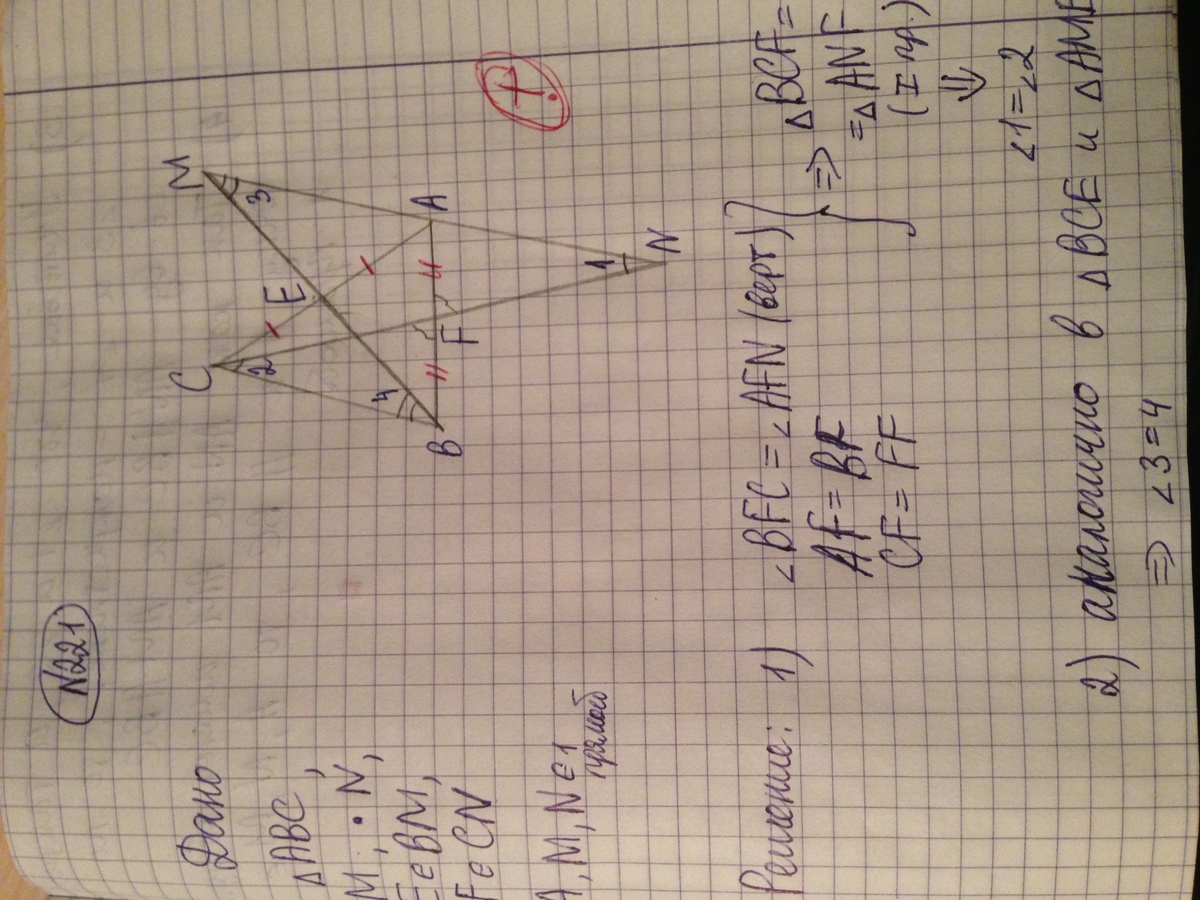 N221
Дано
∆ABC,
M, · N,
E∈BM,
F∈CN
A, M, N ∈ 1
прямой
C
M
2
E
3
4
B
F
A
1
N
Решение: 1) ∠BFC = ∠AFN (верт)
AF = BF
CF = FF
} => ∆BCF =
= ∆ANF
(I пр.)
⇓
∠1 = ∠2
2) аналогично в ∆BCE и ∆AME
=> ∠3 = 4